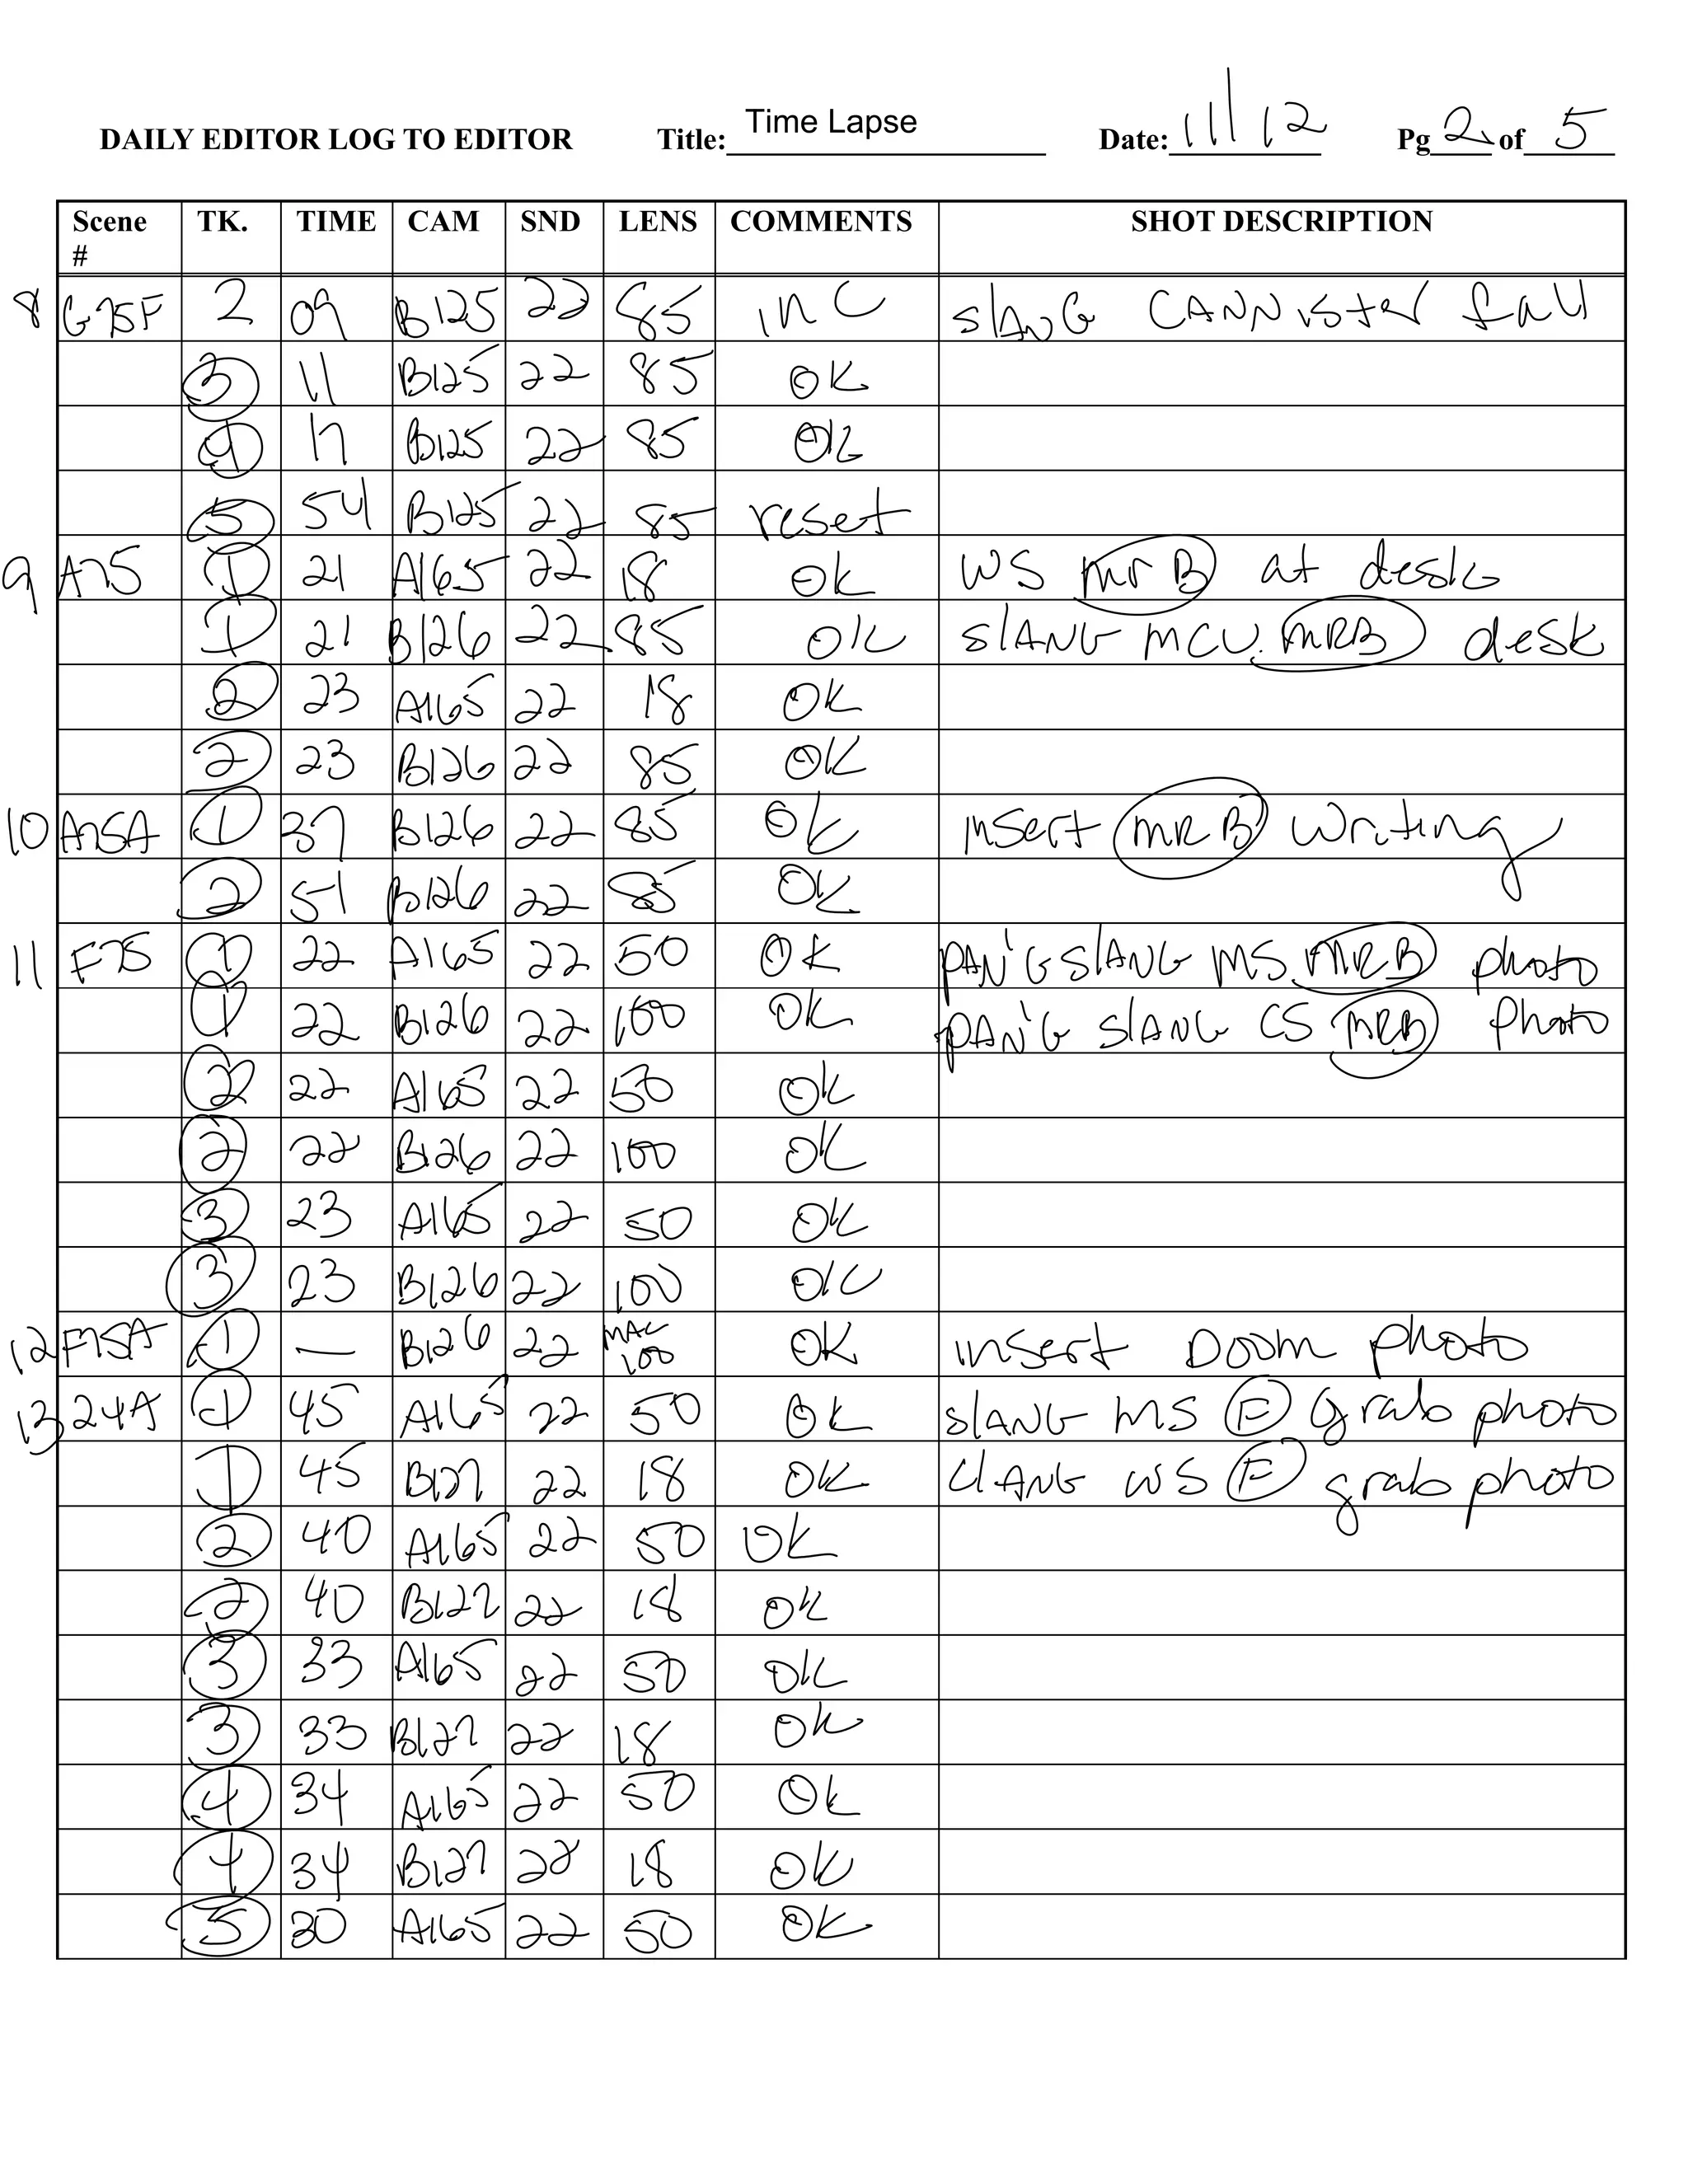 DAILY EDITOR LOG TO EDITOR Title: Time Lapse Date: 11/12 Pg 2 of 5
Scene # TK. TIME CAM SND LENS COMMENTS SHOT DESCRIPTION
8 G75F 2 09 B125 22 85 inc slANG CANNister fall
3 11 B125 22 85 OK
4 B125 22 85 OK
5 54 B125 22 85 reset
9 A75 1 21 A165 22 18 OK WS Mr B at desk
1 21 B126 22 85 OK slANG MCU MRB desk
2 23 A165 22 18 OK
2 23 B126 22 85 OK
10 A75A 1 37 B126 22 85 OK Insert MR B Writing
2 51 B126 22 85 OK
11 F75 1 22 A165 22 50 OK PAN'G SlANG MS MRB photo
1 22 B126 22 100 OK PAN'G SlANG CS MRB Photo
2 22 A165 22 50 OK
2 22 B126 22 100 OK
3 23 A165 22 50 OK
3 23 B126 22 100 OK
12 F75A 1 — B126 22 MAC 100 OK insert Doom photo
13 24A 1 45 A165 22 50 OK slANG MS F grab photo
1 45 B127 22 18 OK WS F grab photo
2 40 A165 22 50 OK
2 40 B127 22 18 OK
3 33 A165 22 50 OK
3 33 B127 22 18 OK
4 34 A165 22 50 OK
4 34 B127 22 18 OK
5 30 A165 22 50 OK